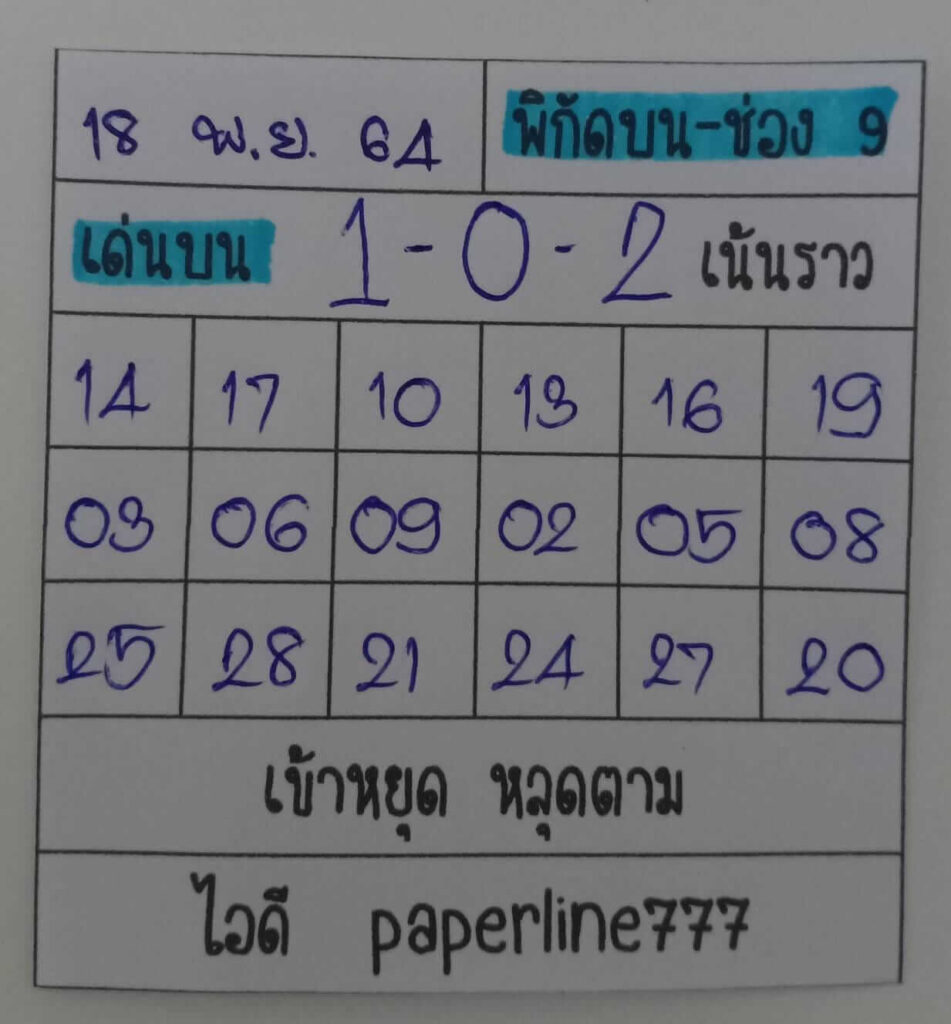 18 พ.ย. 64 พิกัดบน-ช่อง 9
เด่นบน 1-0-2 เน้นราว
14 17 10 13 16 19
03 06 09 02 05 08
25 28 21 24 27 20
เข้าหยุด หลุดตาม
ไอดี paperline777